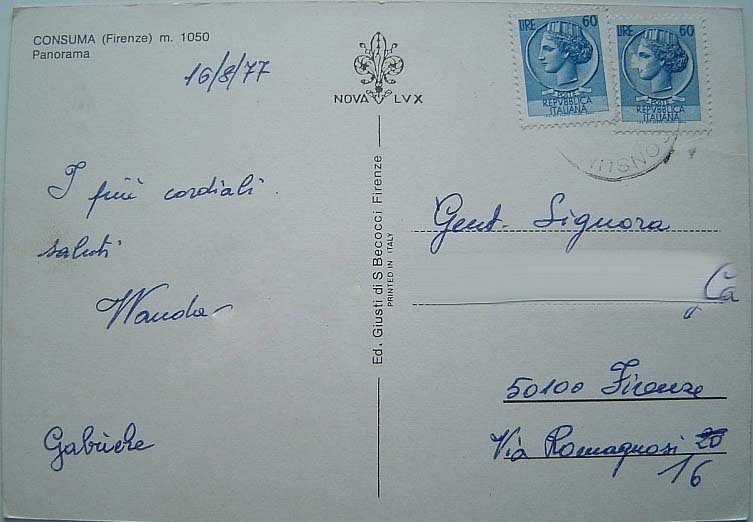 CONSUMA (Firenze) m. 1050
Panorama
16/8/77
NOVA LVX
LIRE 60
POSTE
REPVBBLICA
ITALIANA
LIRE 60
POSTE
REPVBBLICA
ITALIANA
CONSUMA
I più cordiali
saluti
Wanda
Gabriele
Ed. Giusti di S Becocci Firenze
PRINTED IN ITALY
Gent. Signora
50100 Firenze
Via Romagnosi 20
16